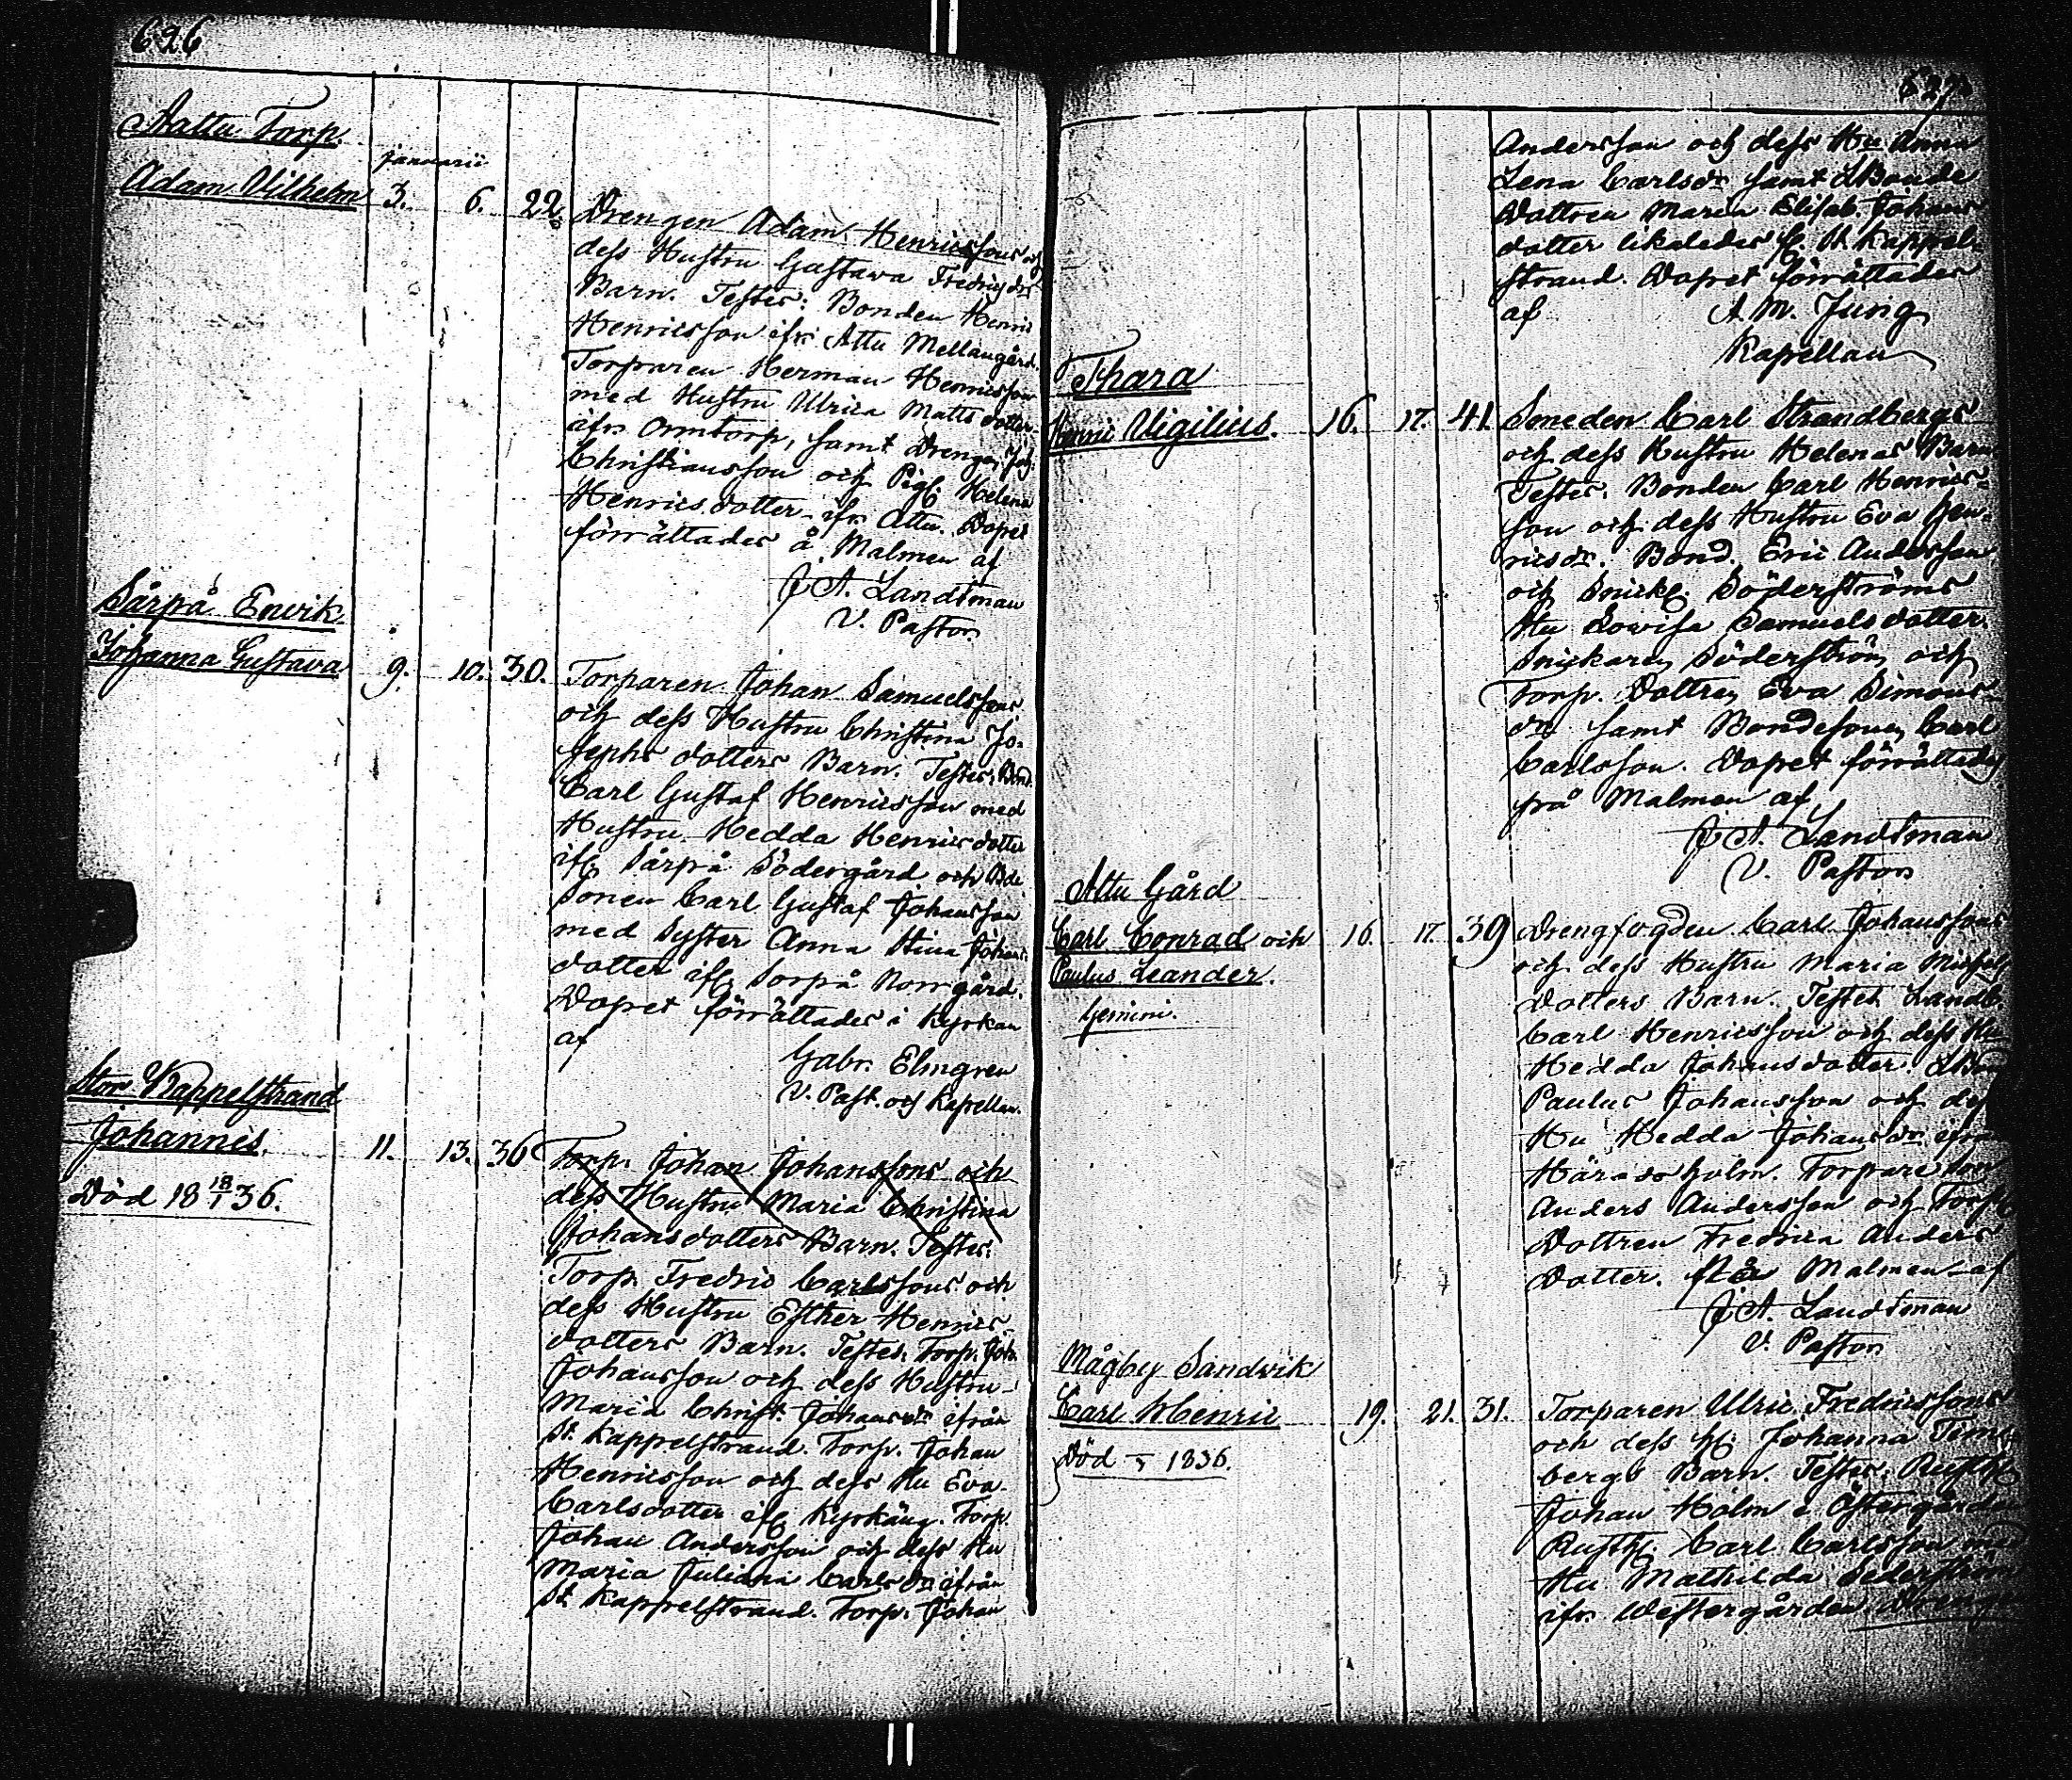 626
Aattu Torp.
januarii
Adam Vilhelm 3. 6. 22. Drengen Adam Henricssons och
dess Hustru Gustava Fredricsdrs
Barn. Testes: Bonden Henric
Henricsson ifr. Attu Mellangård.
Torparen Herman Henricsson
med Hustru Ulrica Matts dotter
ifrn Ormtorp, samt Drengen Joh:
Christiansson och Pig. Helena
Henrics dotter ifrn Attu. Dopet
förrättades å Malmen af
J. A. Landtman
V. Pastor
Särpå Envik.
Johanna Gustava 9. 10. 30. Torparen Johan Samuelssons
och dess Hustru Christina Jo-
sephs dotters Barn. Testes: Bond.
Carl Gustaf Henricsson med
Hustru Hedda Henricsdotter
ifr. Särpå Södergård och Bde
Sonen Carl Gustaf Johansson
med Syster Anna Stina Johans
dotter ifr. Sorpå Norrgård.
Dopet förrättades i Kyrkan
af
Gabr. Elmgren
V. Past. och Kapellan.
Stor Kappelstrand
Johannes. 11. 13. 36 Torp. Johan Johanssons och
Död 18 18/1 36.
dess Hustru Maria Christina
Johansdotters Barn. Testes:
Torp. Fredric Carlssons och
dess Hustru Esther Henrics
dotters Barn. Testes: Torp. Joh.
Johansson och dess Hustru
Maria Christ. Johansdr ifrån
St. Kappelstrand. Torp. Johan
Henricsson och dess Hu Eva
Carlsdotter ifr. Kyrkäng. Torp.
Johan Andersson och dess Hu
Maria Juliana Carlsdr ifrån
St. Kappelstrand. Torp. Johan
627
Andersson och dess Hu Anna
Lena Carlsdr samt LBonde
Dottren Maria Elisab. Johans
dotter likaledes fr. St. Kappel-
strand. Dopet förrättades
af A. M. Jung
Kapellan
Thara
Henric Vigilius. 16. 17. 41. Smeden Carl Strandbergs
och dess Hustru Helenas Barn
Testes: Bonden Carl Henrics-
son och dess Hustru Eva Hen-
ricsdr. Bond. Eric Andersson
och Snick. Söderströms
Hu Lowisa Samuelsdotter.
Snickaren Söderström och
Torp. Dottren Eva Simons
dr samt Bondesonen Carl
Carlsson. Dopet förrättades
på Malmen af
J. A. Landtman
V. Pastor
Attu Gård
Carl Conrad och 16. 17. 39 Drengfogden Carl Johanssons
Paulus Leander.
Gemini.
och dess Hustru Maria
Dotters Barn. Testes Landb.
Carl Henricsson och dess Hu
Hedda Johansdotter. LBon
Paulus Johansson och dess
Hu Hedda Johansdr ifrn
Häradsholm. Torpare son
Anders Andersson och Torp.
Dottren Fredrica Anders
Dotter. Malmen af
J. A. Landtman
V. Pastor
Mågby Sandvik
Carl Henric 19. 21. 31. Torparen Ulric Fredricssons
Död 1836.
och dess H. Johanna
bergs Barn. Testes: Rusth.
Johan Holm i Östergården
Rusth. Carl Carlsson med
Hu Mathilda Sederström
ifrn Westergården. Drengen